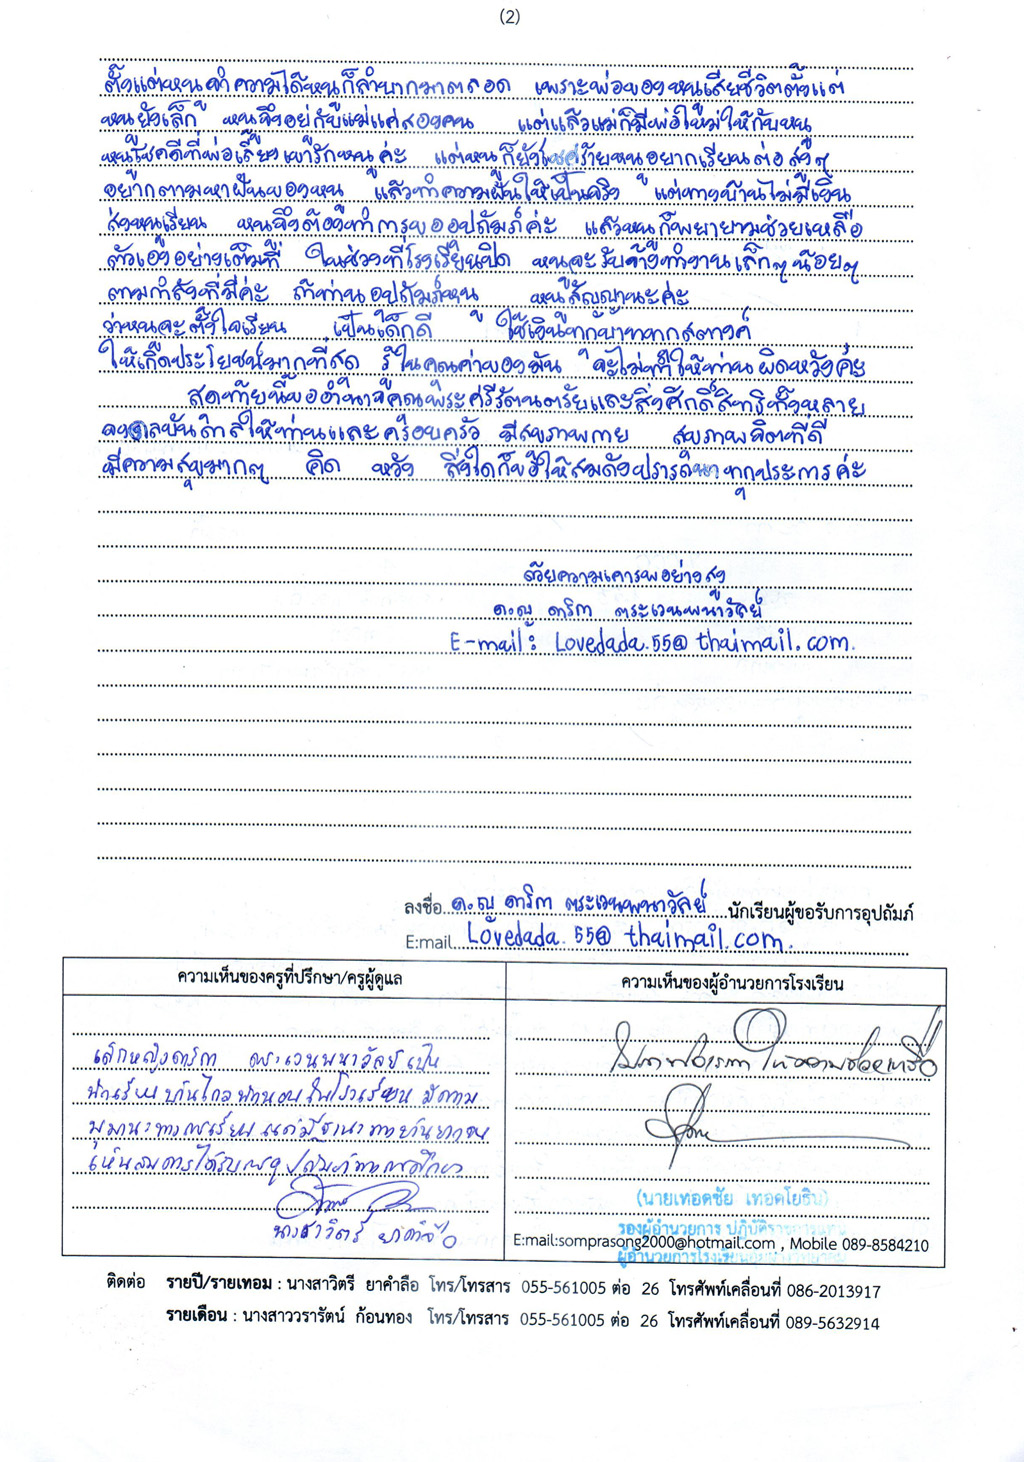 (2)
ตั้งแต่หนูจำความได้หนูก็ลำบากมาตลอด เพราะพ่อของหนูเสียชีวิตตั้งแต่
หนูยังเล็ก หนูจึงอยู่กับแม่แค่สองคน แต่แล้วแม่ก็มีพ่อใหม่ให้กับหนู
หนูโชคดีที่พ่อเลี้ยงเขารักหนูค่ะ แต่หนูก็ยังโชคร้ายหนูอยากเรียนต่อสูงๆ
อยากตามหาฝันของหนู แล้วทำความฝันให้เป็นจริง แต่ทางบ้านไม่มีเงิน
ส่งหนูเรียน หนูจึงต้องทำการขออุปถัมภ์ค่ะ แล้วหนูก็พยายามช่วยเหลือ
ตัวเองอย่างเต็มที่ ในช่วงที่โรงเรียนปิด หนูจะรับจ้างทำงานเล็กๆน้อยๆ
ตามกำลังที่มีค่ะ ถ้าท่านอุปถัมภ์หนู หนูสัญญานะค่ะ
ว่าหนูจะตั้งใจเรียน เป็นเด็กดี ใช้เงินทุกบาททุกสตางค์
ให้เกิดประโยชน์มากที่สุด รู้ในคุณค่าของมัน จะไม่ทำให้ท่านผิดหวังค่ะ
สุดท้ายนี้ขออำนาจคุณพระศรีรัตนตรัยและสิ่งศักดิ์สิทธิ์ทั้งหลาย
จงดลบันดาลให้ท่านและครอบครัว มีสุขภาพกาย สุขภาพจิตที่ดี
มีความสุขมากๆ คิด หวัง สิ่งใดก็ขอให้สมดังปรารถนาทุกประการค่ะ
ด้วยความเคารพอย่างสูง
ด.ญ ดาริกา ตระเวนพนาวัลย์
E-mail: Lovedada.55@thaimail.com.
ลงชื่อ ด.ญ ดาริกา ตระเวนพนาวัลย์ นักเรียนผู้ขอรับการอุปถัมภ์
E:mail Lovedada.55@thaimail.com.
ความเห็นของครูที่ปรึกษา/ครูผู้ดูแล
เด็กหญิงดาริกา ตระเวนพนาวัลย์ เป็น
นักเรียนบ้านไกลพักนอนในโรงเรียน มีความ
มุมานะทางการเรียน แต่มีฐานะทางบ้านยากจน
เห็นสมควรได้รับการอุปถัมภ์ทางการศึกษา
นางสาวิตรี ยาคำลือ
ความเห็นของผู้อำนวยการโรงเรียน
โปรดพิจารณาให้ความช่วยเหลือ
(นายเทอดชัย เทอดโยธิน)
รองผู้อำนวยการ ปฏิบัติราชการแทน
E:mail:somprasong2000@hotmail.com , Mobile 089-8584210
ผู้อำนวยการโรงเรียน
ติดต่อ รายปี/รายเทอม : นางสาวิตรี ยาคำลือ โทร/โทรสาร 055-561005 ต่อ 26 โทรศัพท์เคลื่อนที่ 086-2013917
รายเดือน : นางสาววรารัตน์ ก้อนทอง โทร/โทรสาร 055-561005 ต่อ 26 โทรศัพท์เคลื่อนที่ 089-5632914